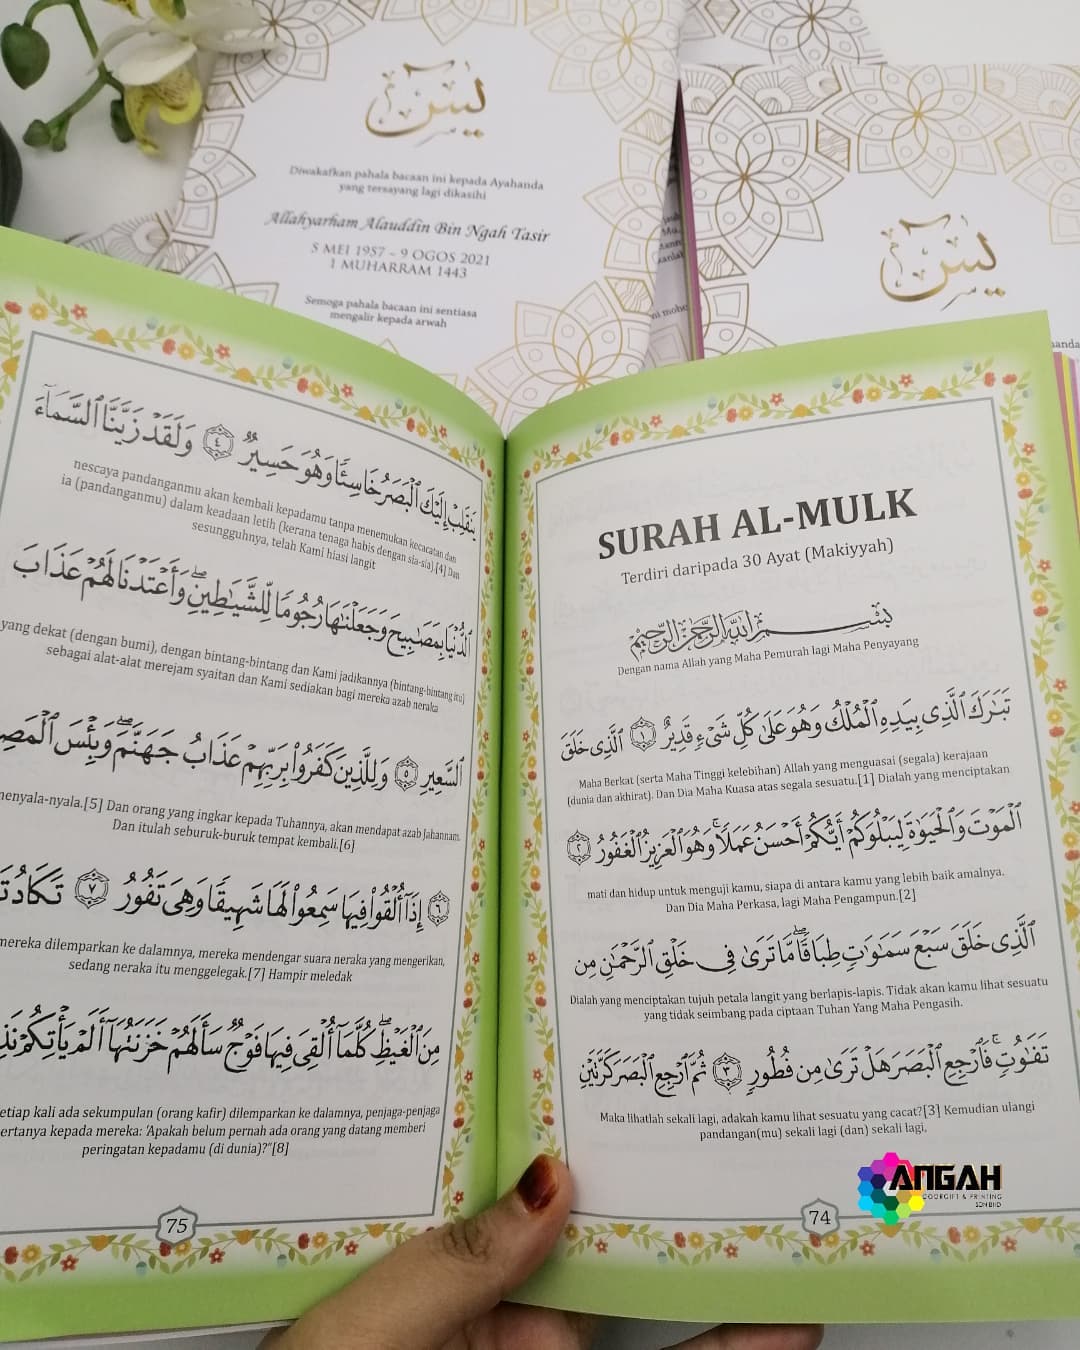 يس
Diwakafkan pahala bacaan ini kepada Ayahanda
yang tersayang lagi dikasihi
Allahyarham Alauddin Bin Ngah Tasir
5 MEI 1957 - 9 OGOS 2021
1 MUHARRAM 1443
Semoga pahala bacaan ini sentiasa
mengalir kepada arwah
يس
SURAH AL-MULK
Terdiri daripada 30 Ayat (Makiyyah)
بِسْمِ اللَّهِ الرَّحْمَٰنِ الرَّحِيمِ
Dengan nama Allah yang Maha Pemurah lagi Maha Penyayang
تَبَٰرَكَ ٱلَّذِى بِيَدِهِ ٱلْمُلْكُ وَهُوَ عَلَىٰ كُلِّ شَىْءٍ قَدِيرٌ ١ ٱلَّذِى خَلَقَ
Maha Berkat (serta Maha Tinggi kelebihan) Allah yang menguasai (segala) kerajaan
(dunia dan akhirat). Dan Dia Maha Kuasa atas segala sesuatu.[1] Dialah yang menciptakan
ٱلْمَوْتَ وَٱلْحَيَوٰةَ لِيَبْلُوَكُمْ أَيُّكُمْ أَحْسَنُ عَمَلًا ۚ وَهُوَ ٱلْعَزِيزُ ٱلْغَفُورُ ٢
mati dan hidup untuk menguji kamu, siapa di antara kamu yang lebih baik amalnya.
Dan Dia Maha Perkasa, lagi Maha Pengampun.[2]
ٱلَّذِى خَلَقَ سَبْعَ سَمَٰوَٰتٍ طِبَاقًا ۖ مَّا تَرَىٰ فِى خَلْقِ ٱلرَّحْمَٰنِ مِن
Dialah yang menciptakan tujuh petala langit yang berlapis-lapis. Tidak akan kamu lihat sesuatu
yang tidak seimbang pada ciptaan Tuhan Yang Maha Pengasih.
تَفَٰوُتٍ ۖ فَٱرْجِعِ ٱلْبَصَرَ هَلْ تَرَىٰ مِن فُطُورٍ ٣ ثُمَّ ٱرْجِعِ ٱلْبَصَرَ كَرَّتَيْنِ
Maka lihatlah sekali lagi, adakah kamu lihat sesuatu yang cacat?[3] Kemudian ulangi
pandangan(mu) sekali lagi (dan) sekali lagi,
74
ANGAH
DOORGIFT & PRINTING
SDN BHD
يَنقَلِبْ إِلَيْكَ ٱلْبَصَرُ خَاسِئًا وَهُوَ حَسِيرٌ ٤ وَلَقَدْ زَيَّنَّا ٱلسَّمَآءَ
nescaya pandanganmu akan kembali kepadamu tanpa menemukan kecacatan dan
ia (pandanganmu) dalam keadaan letih (kerana tenaga habis dengan sia-sia).[4] Dan
sesungguhnya, telah Kami hiasi langit
ٱلدُّنْيَا بِمَصَٰبِيحَ وَجَعَلْنَٰهَا رُجُومًا لِّلشَّيَٰطِينِ ۖ وَأَعْتَدْنَا لَهُمْ عَذَابَ
yang dekat (dengan bumi), dengan bintang-bintang dan Kami jadikannya (bintang-bintang itu)
sebagai alat-alat merejam syaitan dan Kami sediakan bagi mereka azab neraka
ٱلسَّعِيرِ ٥ وَلِلَّذِينَ كَفَرُوا۟ بِرَبِّهِمْ عَذَابُ جَهَنَّمَ ۖ وَبِئْسَ ٱلْمَصِ
menyala-nyala.[5] Dan orang yang ingkar kepada Tuhannya, akan mendapat azab Jahannam.
Dan itulah seburuk-buruk tempat kembali.[6]
٦ إِذَآ أُلْقُوا۟ فِيهَا سَمِعُوا۟ لَهَا شَهِيقًا وَهِىَ تَفُورُ ٧ تَكَادُ تَ
mereka dilemparkan ke dalamnya, mereka mendengar suara neraka yang mengerikan,
sedang neraka itu menggelegak.[7] Hampir meledak
مِنَ ٱلْغَيْظِ ۖ كُلَّمَآ أُلْقِىَ فِيهَا فَوْجٌ سَأَلَهُمْ خَزَنَتُهَآ أَلَمْ يَأْتِكُمْ نَذِ
etiap kali ada sekumpulan (orang kafir) dilemparkan ke dalamnya, penjaga-penjaga
ertanya kepada mereka: 'Apakah belum pernah ada orang yang datang memberi
peringatan kepadamu (di dunia)?"[8]
75